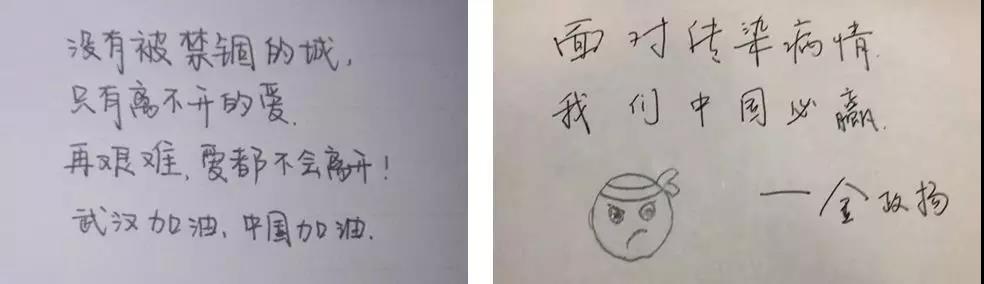 没有被禁锢的城，
只有离不开的爱.
再艰难，爱都不会离开！
武汉加油、中国加油.
面对传染病情.
我们中国必赢.
一金政扬